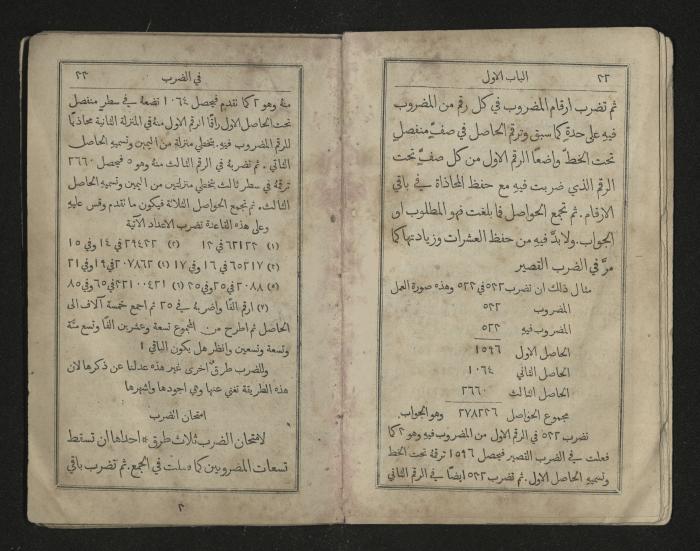 ٢٢ الباب الاول
ثم تضرب ارقام المضروب في كل رقم من المضروب
فيهِ على حدةٍ كما سبق وترقم الحاصل في صفٍّ منفصل
تحت الخطّ واضعًا الرقم الاول من كل صفٍّ تحت
الرقم الذي ضربت فيهِ مع حفظ المحاذاة في باقي
الارقام. ثم تجمع الحواصل فما بلغت فهو المطلوب او
الجواب. ولا بدَّ فيهِ من حفظ العشرات وزيادتها كما
مرَّ في الضرب القصير
مثال ذلك ان تضرب ٥٣٢ في ٥٢٣ وهذه صورة العمل
المضروب ٥٣٢
المضروب فيهِ ٥٢٣
الحاصل الاول ١٥٩٦
الحاصل الثاني ١٠٦٤
الحاصل الثالث ٢٦٦٠
مجموع الحواصل ٢٧٨٢٣٦ وهو الجواب.
تضرب ٥٣٢ في الرقم الاول من المضروب فيهِ وهو ٣ كما
فعلت في الضرب القصير فيحصل ١٥٩٦ ترقمهُ تحت الخط
وتسميهِ الحاصل الاول. ثم تضرب ٥٣٢ ايضًا في الرقم الثاني
في الضرب ٢٣
منهُ وهو ٢ كما تقدم فيحصل ١٠٦٤ تضعهُ في سطرٍ منفصل
تحت الحاصل الاول راقًا الرقم الاول منهُ في المنزلة الثانية محاذيًا
للرقم المضروب فيهِ. بتخطّي منزلة من اليمين وتسميهِ الحاصل
الثاني. ثم تضربهُ في الرقم الثالث منهُ وهو ٥ فيحصل ٢٦٦٠
ترقمهُ في سطر ثالث بتخطّي منزلتين من اليمين وتسميهِ الحاصل
الثالث. ثم تجمع الحواصل الثلاثة فيكون ما تقدم وقس عليهِ
وعلى هذه القاعدة تضرب الاعداد الآتية
(١) ٦٢١٢٣ في ١٢ (٢) ٢٩٤٣٢ في ١٤ وفي ١٥
(٣) ٦٥٢١٧ في ١٦ وفي ١٧ (٤) ٢٠٧٨٦٢ في ١٩ وفي ٢١
(٥) ٢٠٨٨ في ٢٥ وفي ٢٥ (٦) ٢٢١٠٠٤٢١ في ٦٥ وفي ٨٥
(٧) ارقم الفًا واضربهُ في ٢٥ ثم اجمع خمسة آلاف الى
الحاصل ثم اطرح من المجموع تسعة وعشرين الفًا وتسع مئة
وتسعة وتسعين وانظر هل يكون الباقي ١
وللضرب طرقٌ اخرى غير هذه عدلنا عن ذكرها لان
هذه الطريقة تغني عنها وهي اجودها واشهرها
امتحان الضرب
لامتحان الضرب ثلاث طرق* احداها ان تسقط
تسعات المضروبين كما فعلت في الجمع. ثم تضرب باقي
٣